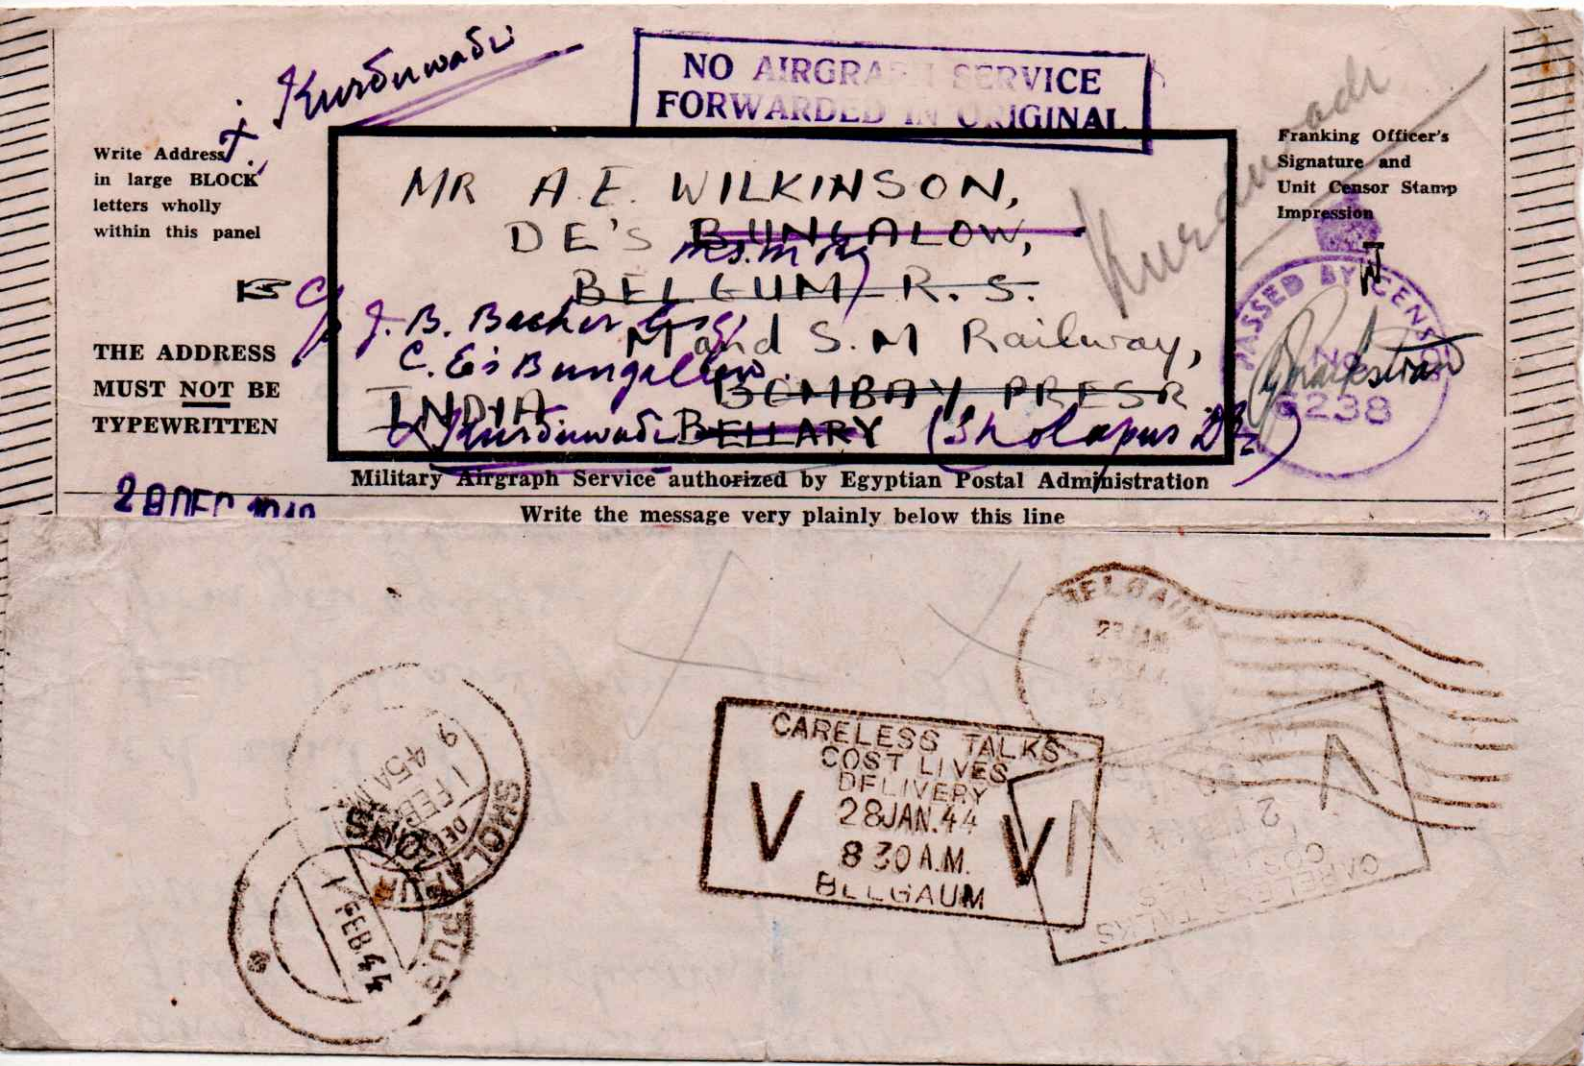 Kurduwadi
NO AIRGRAPH SERVICE
FORWARDED IN ORIGINAL
Kurduwadi
Write Address
in large BLOCK
letters wholly
within this panel
THE ADDRESS
MUST NOT BE
TYPEWRITTEN
MR A.E. WILKINSON,
DE'S BUNGALOW,
BELGUM R.S.
M and S.M Railway,
BOMBAY PRESR
INDIA
BELLARY
C/o J. B. Bacher Esq
C. E's Bungalow
Kurduwadi (Sholapur
Franking Officer's
Signature and
Unit Censor Stamp
Impression
PASSED BY CENSOR
No
6238
Military Airgraph Service authorized by Egyptian Postal Administration
28 DEC
Write the message very plainly below this line
BELGAUM
JAN
CARELESS TALKS
COST LIVES
DELIVERY
28 JAN. 44
8 30 A.M.
BELGAUM
V V
CARELESS TALKS
COST
2
V V
SHOLAPUR
DEL
1 FEB
9 45 A.M.
1 FEB. 44